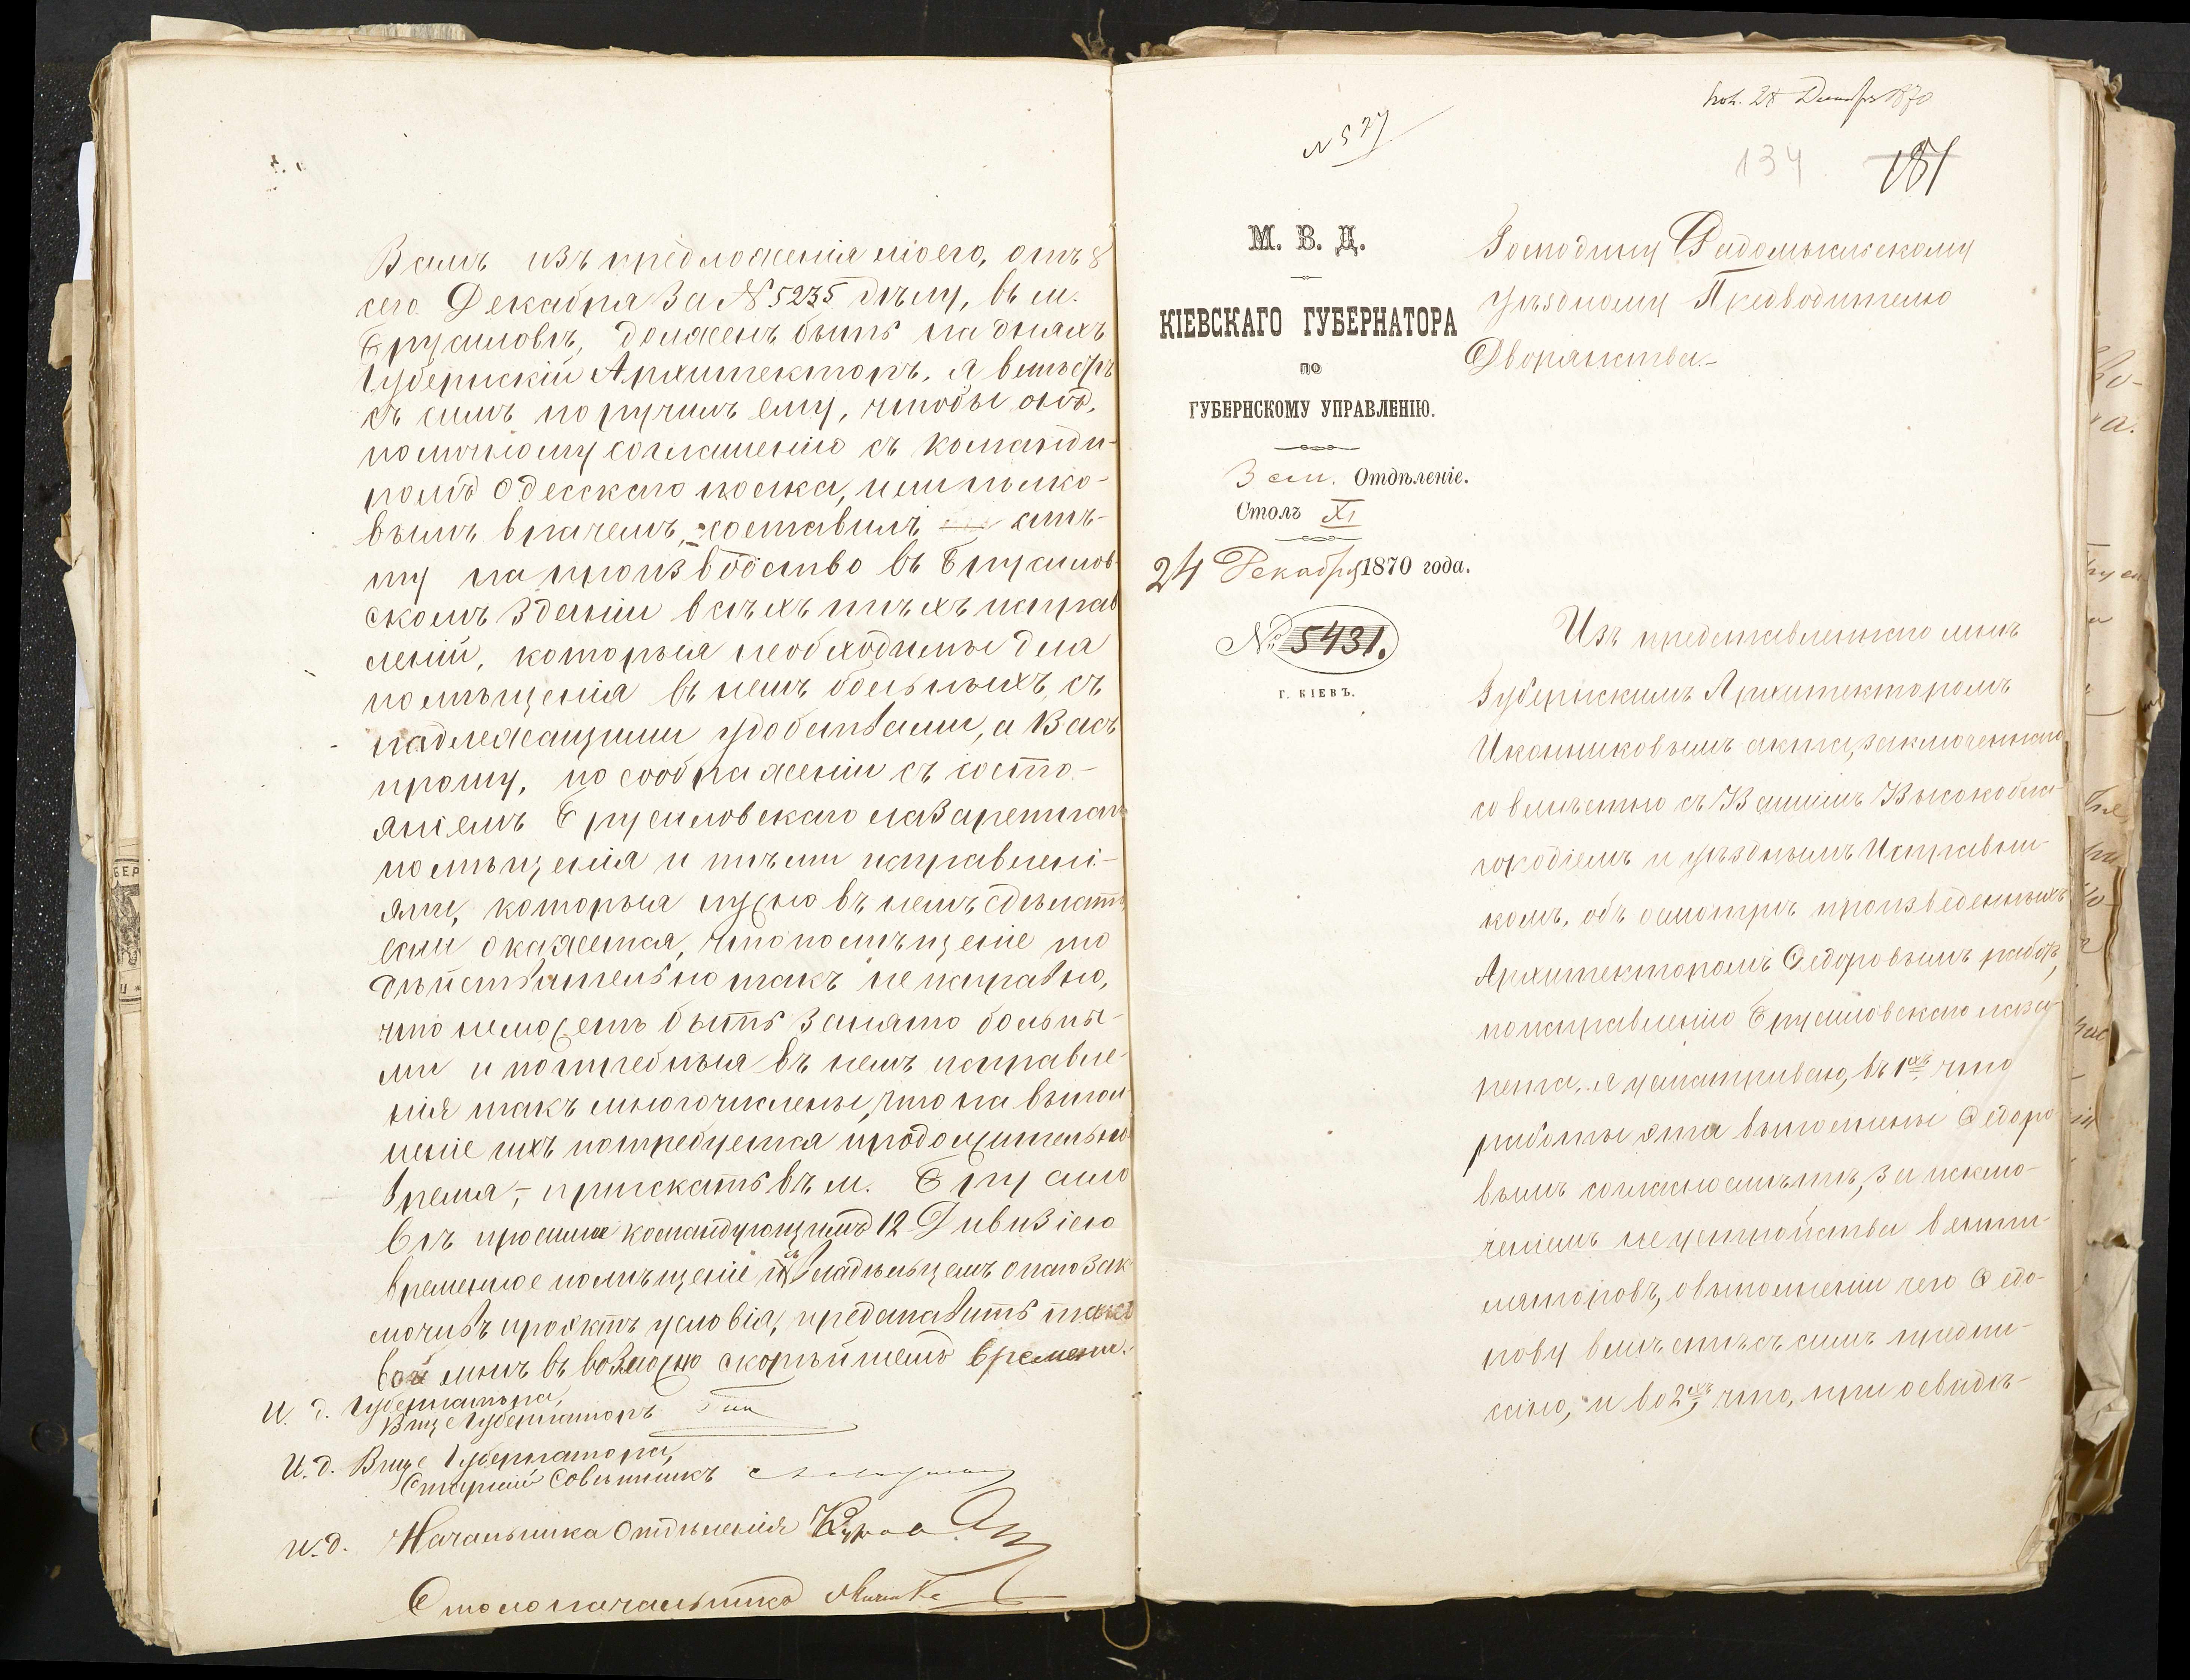 Вамъ изъ предложенія моего, отъ 8
сего Декабря за № 5235 дѣлу, въ м.
Брусиловѣ, долженъ быть на дняхъ
Губернскій Архитекторъ. Я вмѣстѣ
съ симъ поручилъ ему, чтобы онъ,
по личному соглашенію съ команди-
ромъ Одесскаго полка, или полко-
вымъ врачемъ, составилъ смѣ-
ту на производство въ Брусилов
скомъ зданіи всѣхъ тѣхъ исправ
леній, которыя необходимы для
помѣщенія въ немъ больныхъ съ
надлежащими удобствами, а Васъ
прошу, по соображеніи съ состо-
яніемъ Брусиловскаго лазаретнаго
помѣщенія и тѣми исправлені-
ями, которыя нужно въ немъ сдѣлать,
если окажется, что помѣщеніе то
дѣйствительно такъ не исправно,
что неможетъ быть занято больны-
ми и потребныя въ немъ исправле-
нія такъ многочислены, что на выпол
неніе ихъ потребуется продолжительно
время, - пріискать въ м. Брусило
вѣ командующимъ 12 Дивизіею
временное помѣщеніе и съ владѣльцемъ онаго зак
лючивъ проэктъ условія, представить тако
вой мнѣ въ возможно скорѣйшемъ времени.
И. д. Губернатора,
Вице Губернаторъ
И. д. Вице Губернатора,
Старшій Совѣтникъ
И. д. Начальника Отдѣленія
Столоначальника
№ 527
пол. 28 Декабря 1870
134 181
М. В. Д.
КІЕВСКАГО ГУБЕРНАТОРА
ПО
ГУБЕРНСКОМУ УПРАВЛЕНІЮ.
Отдѣленіе.
Столъ XI
24 Декабря 1870 года.
№ 5431.
Г. КІЕВЪ.
Господину Радомысльскому
Уѣздному Предводителю
Дворянства.-
Изъ представленнаго мнѣ
Губернскимъ Архитекторомъ
Иконниковымъ акта, заключеннаго
совмѣстно съ Вашимъ Высокобла-
городіемъ и уѣзднымъ Исправни-
комъ, объ осмотрѣ произведенныхъ
Архитекторомъ Федоровымъ работъ,
по исправленію Брусиловскаго лаза-
рета, я усматриваю, въ 1хъ что
работы эти выполнены Федоро
вымъ согласно смѣтѣ, за исклю-
ченіемъ не устройства венти-
ляторовъ, о выполненіи чего Федо-
рову вмѣстѣ съ симъ предпи-
сано, и во 2хъ, что, при освидѣ-